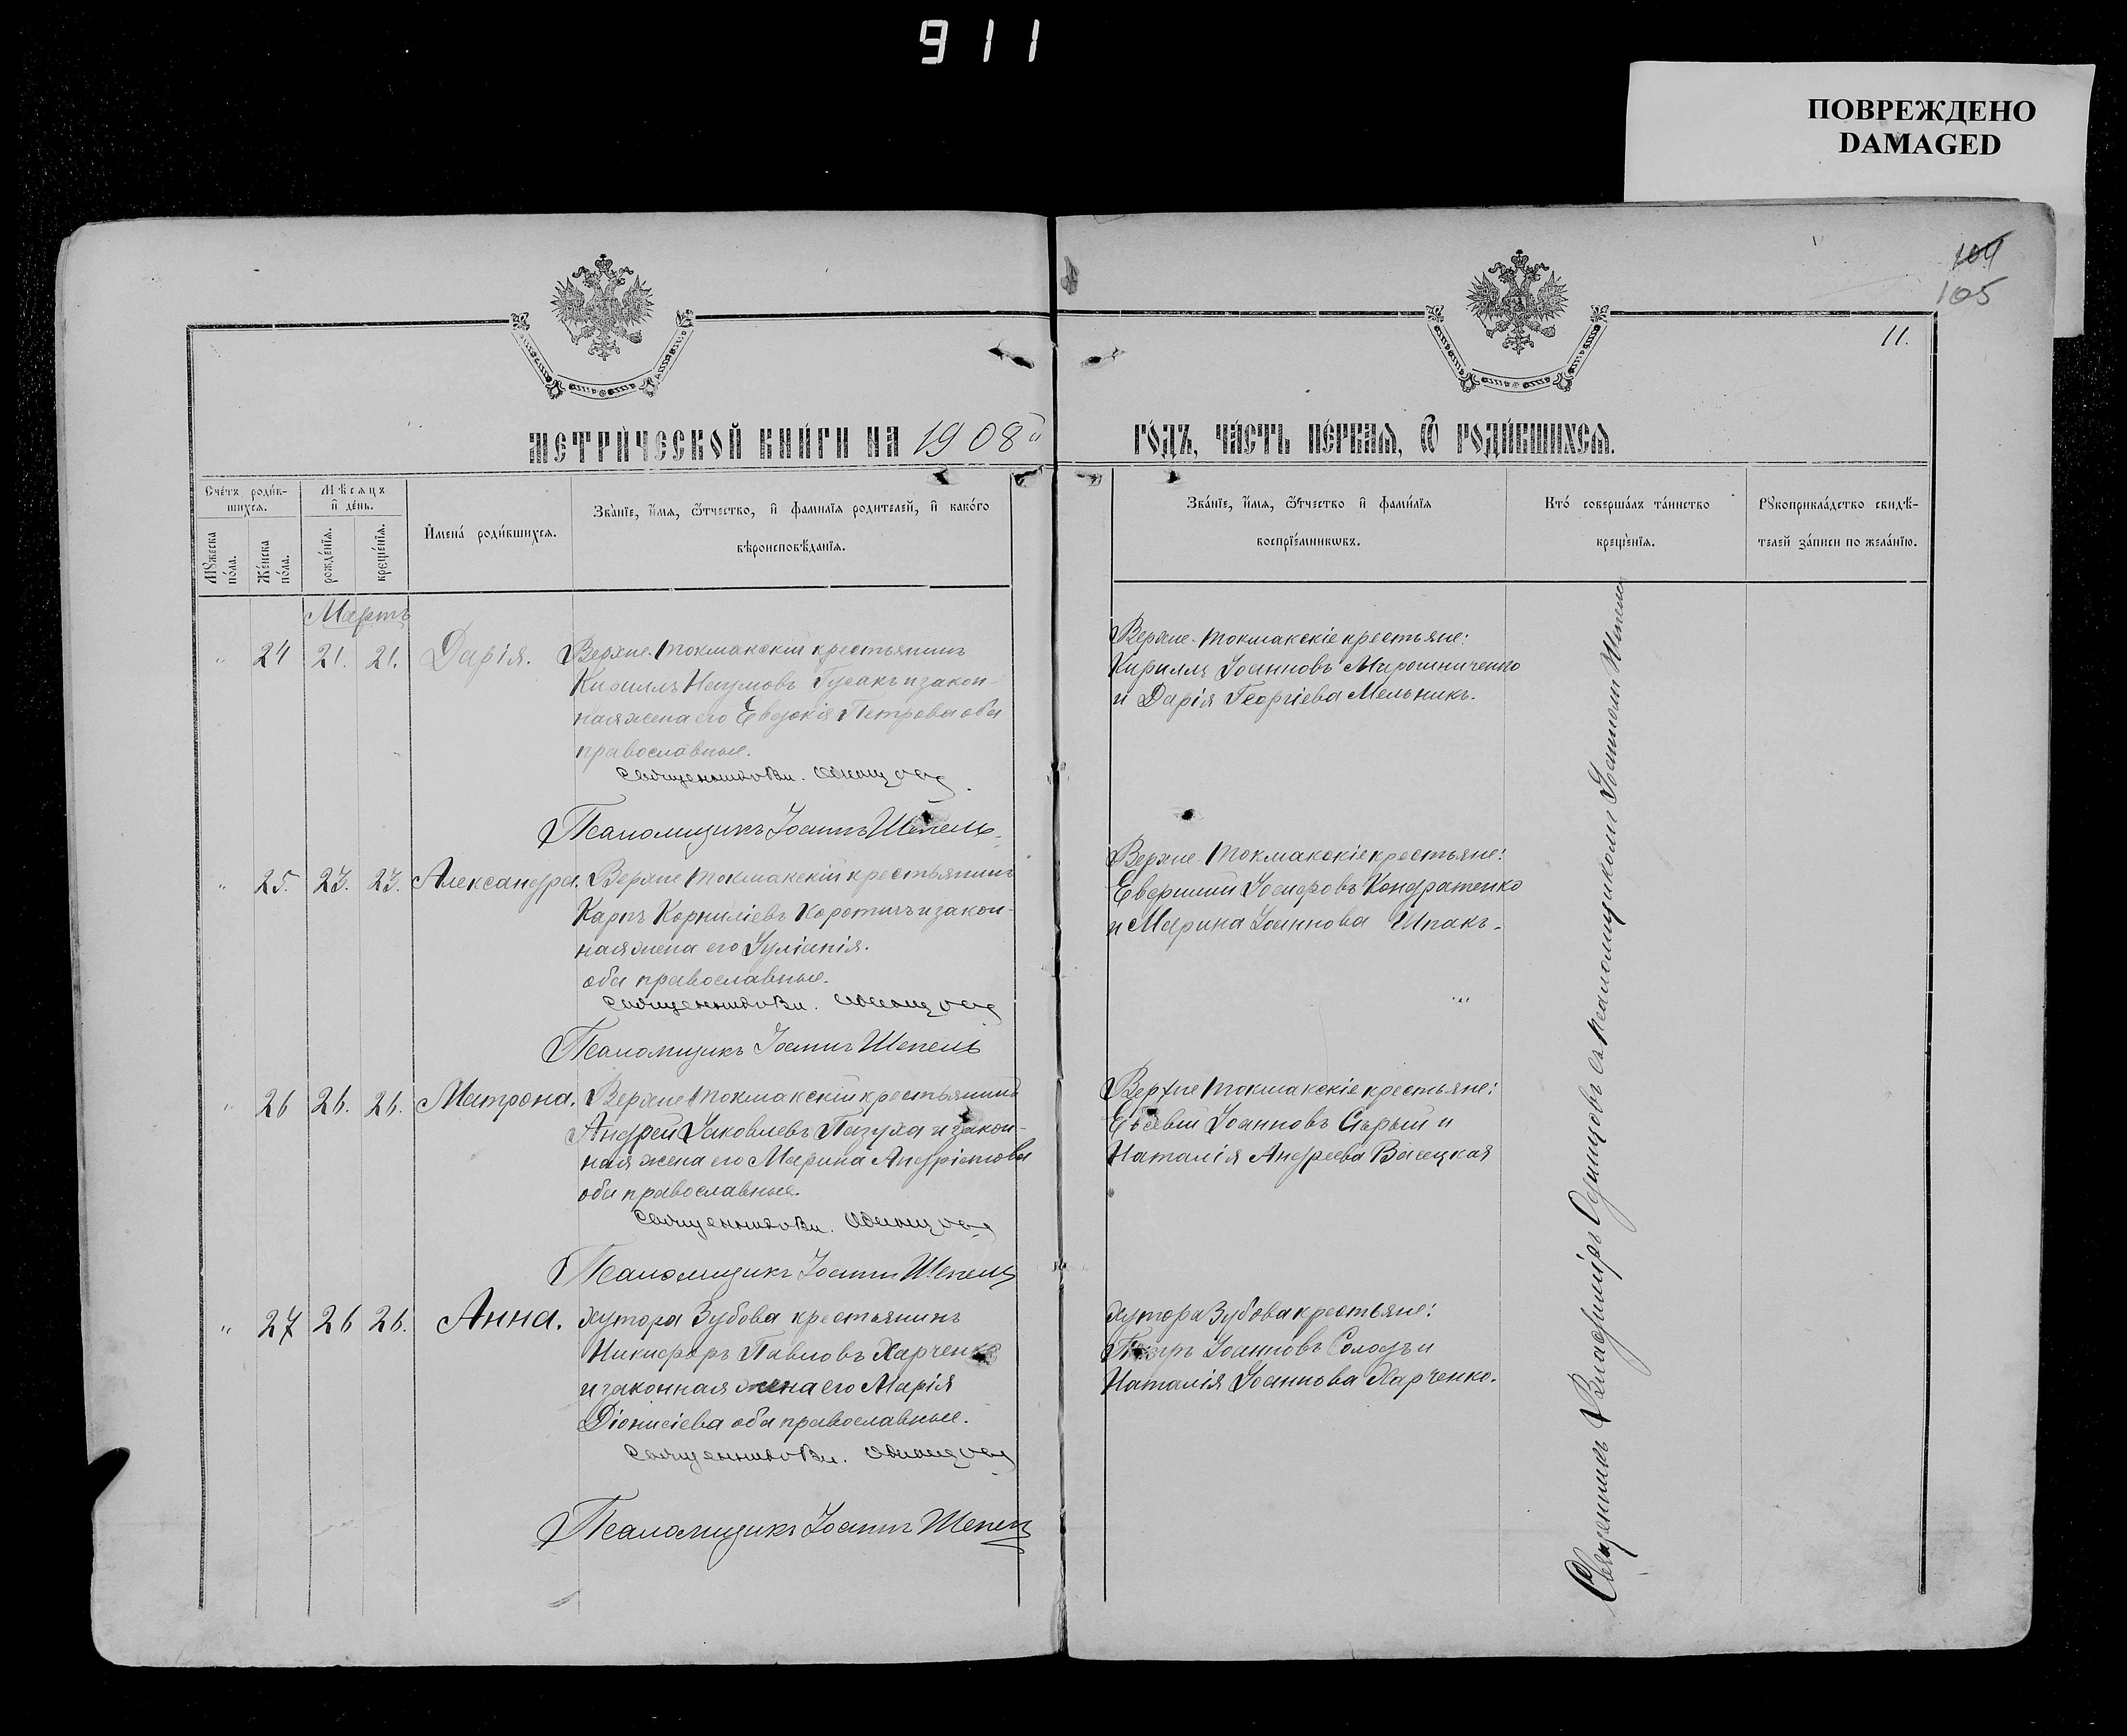 911
ПОВРЕЖДЕНО
DAMAGED
104
105
11.
МЕТРИЧЕСКОЙ КНИГИ НА 1908 ГОДЪ, ЧАСТЬ ПЕРВАЯ, Ѿ РОДИВШИХСЯ.
Счетъ родив-
шихся.
Мѣсяцъ
и день.
Мужеска
пола.
Женска
пола.
рожденія.
крещенія.
Имена родившихся.
Званіе, имя, ѿтчество, и фамилія родителей, и какого
вѣроисповѣданія.
Званіе, имя, ѿтчество и фамилія
воспріемниковъ.
Кто совершалъ таинство
крещенія.
Рукоприкладство свидѣ-
телей записи по желанію.
Мартъ
" 24 21. 21. Дарія. Верхне-Токмакскій крестьянинъ
Кириллъ Наумовъ Гусакъ и закон-
ная жена его Евдокія Петрова оба
православные.
Священникъ Вл. Одинцовъ
Псаломщикъ Іоаннъ Шепель.
Верхне-Токмакскіе крестьяне:
Кириллъ Іоанновъ Мирошниченко
и Дарія Георгіева Мельникъ.
" 25. 23. 23. Александра. Верхне Токмакскій крестьянинъ
Карпъ Корниліевъ Коротичъ и закон-
ная жена его Іуліанія.
оба православные.
Священникъ Вл. Одинцовъ
Псаломщикъ Іоаннъ Шепель
Верхне-Токмакскіе крестьяне:
Іосифовъ Кондратенко
и Марина Іоаннова Шпакъ.
" 26 26. 26. Матрона. Верхне Токмакскій крестьянинъ
Андрей Іаковлевъ Пазуха и закон-
ная жена его Марина Андріанова
оба православные.
Священникъ Вл. Одинцовъ
Псаломщикъ Іоаннъ Шепель
Верхне Токмакскіе крестьяне:
Евсевій Іоанновъ Сѣрый и
Наталія Андреева Висецкая
" 27 26 26. Анна. Хутора Зубова крестьянинъ
Никифоръ Павловъ Харченко
и законная жена его Марія
Діонисіева оба православные.
Священникъ Вл. Одинцовъ
Псаломщикъ Іоаннъ Шепель
Хутора Зубова крестьяне:
Іоанновъ Солодъ и
Наталія Іоаннова Харченко.
Священникъ Владиміръ Одинцовъ съ псаломщикомъ Іоанномъ Шепель